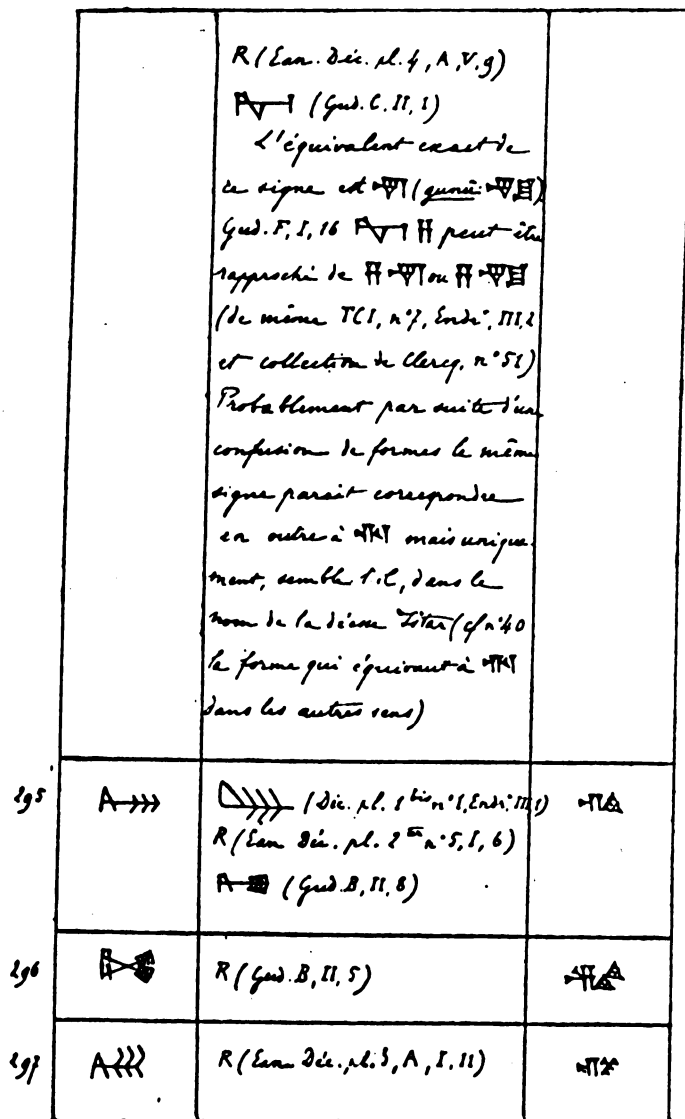 R (Ean. Déc. pl. 4, A, V, 9)
(Gud. C. II, 1)
L'équivalent exact de
ce signe est (gunû: )
Gud. F, I, 16 peut être
rapproché de ou
(de même TCI, n° 7, Endr., III, 2
et collection de Clercq, n° 51)
Probablement par suite d'une
confusion de formes le même
signe parait correspondre
en outre à mais unique-
ment, semble t-il, dans le
nom de la déesse Ištar (cf n° 40
la forme qui équivaut à
dans les autres sens)
295 (Déc. pl. 1 bis n° 1, Endr. II, 1)
R (Ean Déc. pl. 2 n° 5, I, 6)
(Gud. B, II, 8)
296 R (Gud. B, II, 5)
297 R (Ean Déc. pl. 3, A, I, 11)